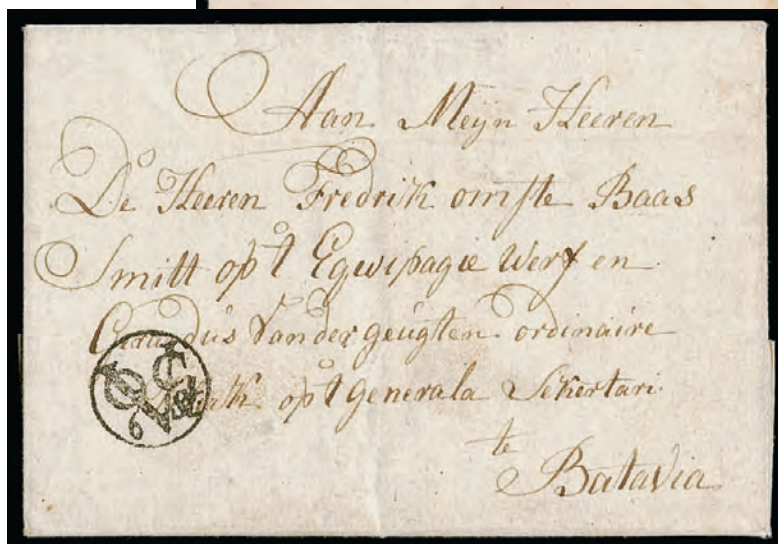 Aan Meyn Heeren
De Heeren Fredrik omste Baas
Smitt op't Eqwipagie Werf en
Claudius Vandergeugten ordinaire
op't Generala Sekertari
te
Batavia